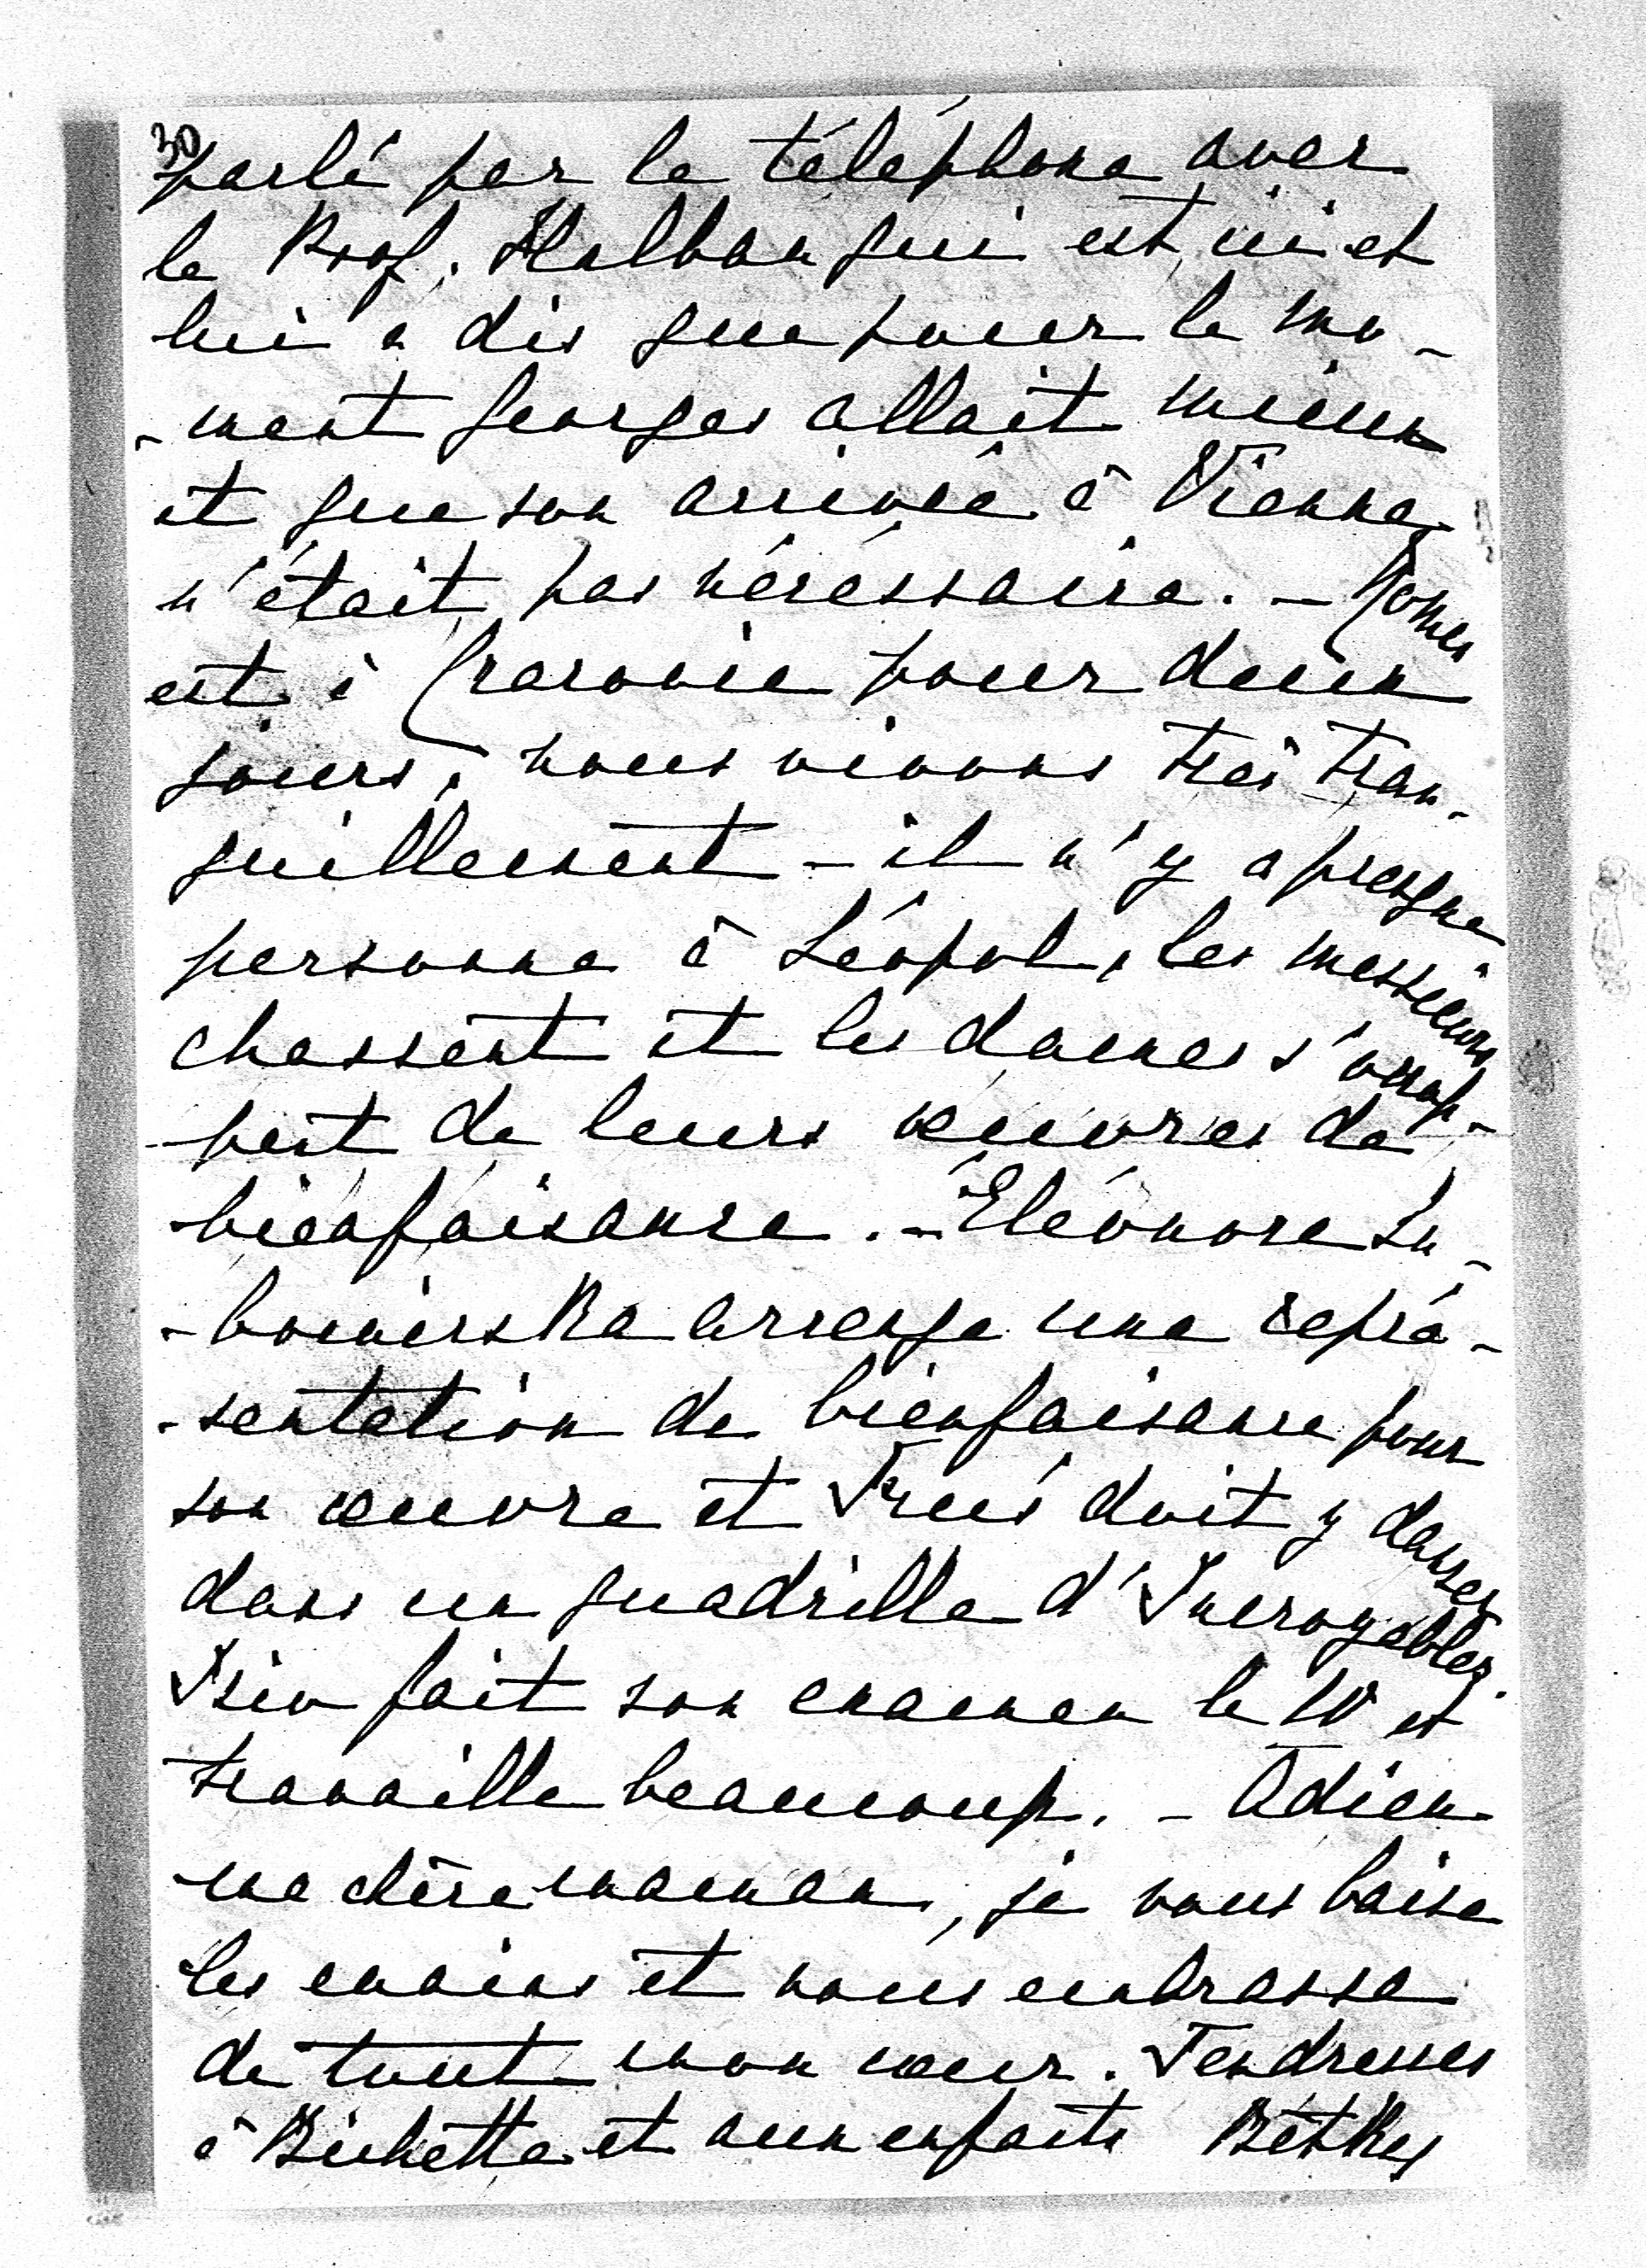 30
parlé par le téléphone avec
le Prof. Halban qui est ici et
lui a dis que pour le mo-
-ment Georges allait mieux
et que son arrivée à Vienne
n'était pas nécéssaire. – Romer
est à Cracovie pour deux
jours, nous vivons très tran-
quillement – il n'y a presque
personne à Léopol, les messieurs
chassent et les dames s'occup-
-pent de leurs œuvres de
bienfaisance. – Eléonore Lu-
-bomirska arrange une repré-
-sentation de bienfaisance pour
son œuvre et doit y danser
dans un quadrille d'Incroyables.
Izio fait son examen le 10 et
travaille beaucoup. – Adieu
ma chère maman, je vous baise
les mains et vous embrasse
de tout mon cœur. Tendresses
à Bichette et aux enfants